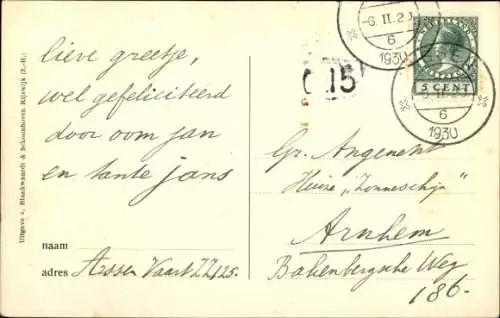 lieve greetje,
wel gefeliciteerd
door oom jan
en tante jans
naam
adres Assen Vaart ZZ 125.
Uitgave v. Blankwaardt & Schoonhoven Rijswijk (Z.-H.)
-6.II.2
6
1930
NEDERLAND
5 CENT
6
1930
.15
Gr. Angenent
Huize „Zonneschijn"
Arnhem
Bakenbergsche Weg
186.